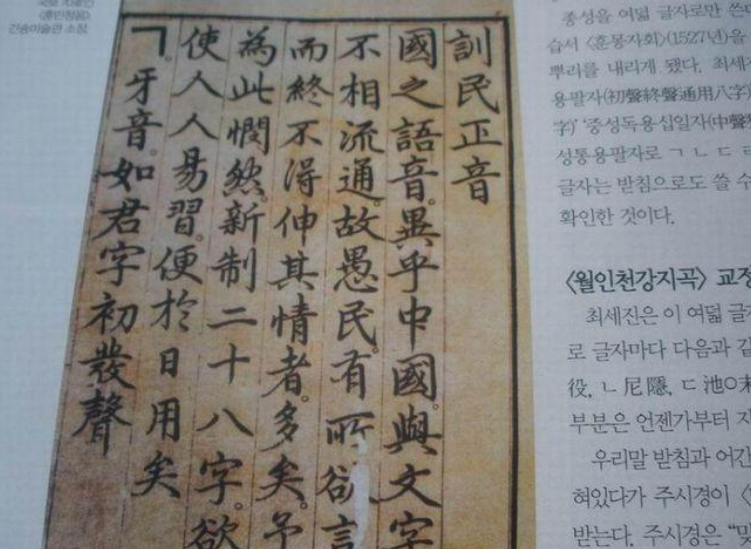 〈훈민정음〉
간송미술관 소장.
訓民正音
國之語音。異乎中國。與文字
不相流通。故愚民。有所欲言
而終不得伸其情者。多矣。予
為此憫然。新制二十八字。欲
使人人易習。便於日用矣
ㄱ。牙音。如君字初發聲
종성을 여덟 글자로만
습서 〈훈몽자회〉(1527년)을
뿌리를 내리게 됐다. 최세
용팔자(初聲終聲通用八字)
字)’ ‘중성독용십일자(中聲
성통용팔자로 ㄱ ㄴ ㄷ ㄹ
글자는 받침으로도 쓸 수
확인한 것이다.
〈월인천강지곡〉 교정
최세진은 이 여덟
로 글자마다 다음과
役, ㄴ 尼隱, ㄷ 池○末
부분은 언젠가부터
우리말 받침과 어간
혀있다가 주시경이
받는다. 주시경은